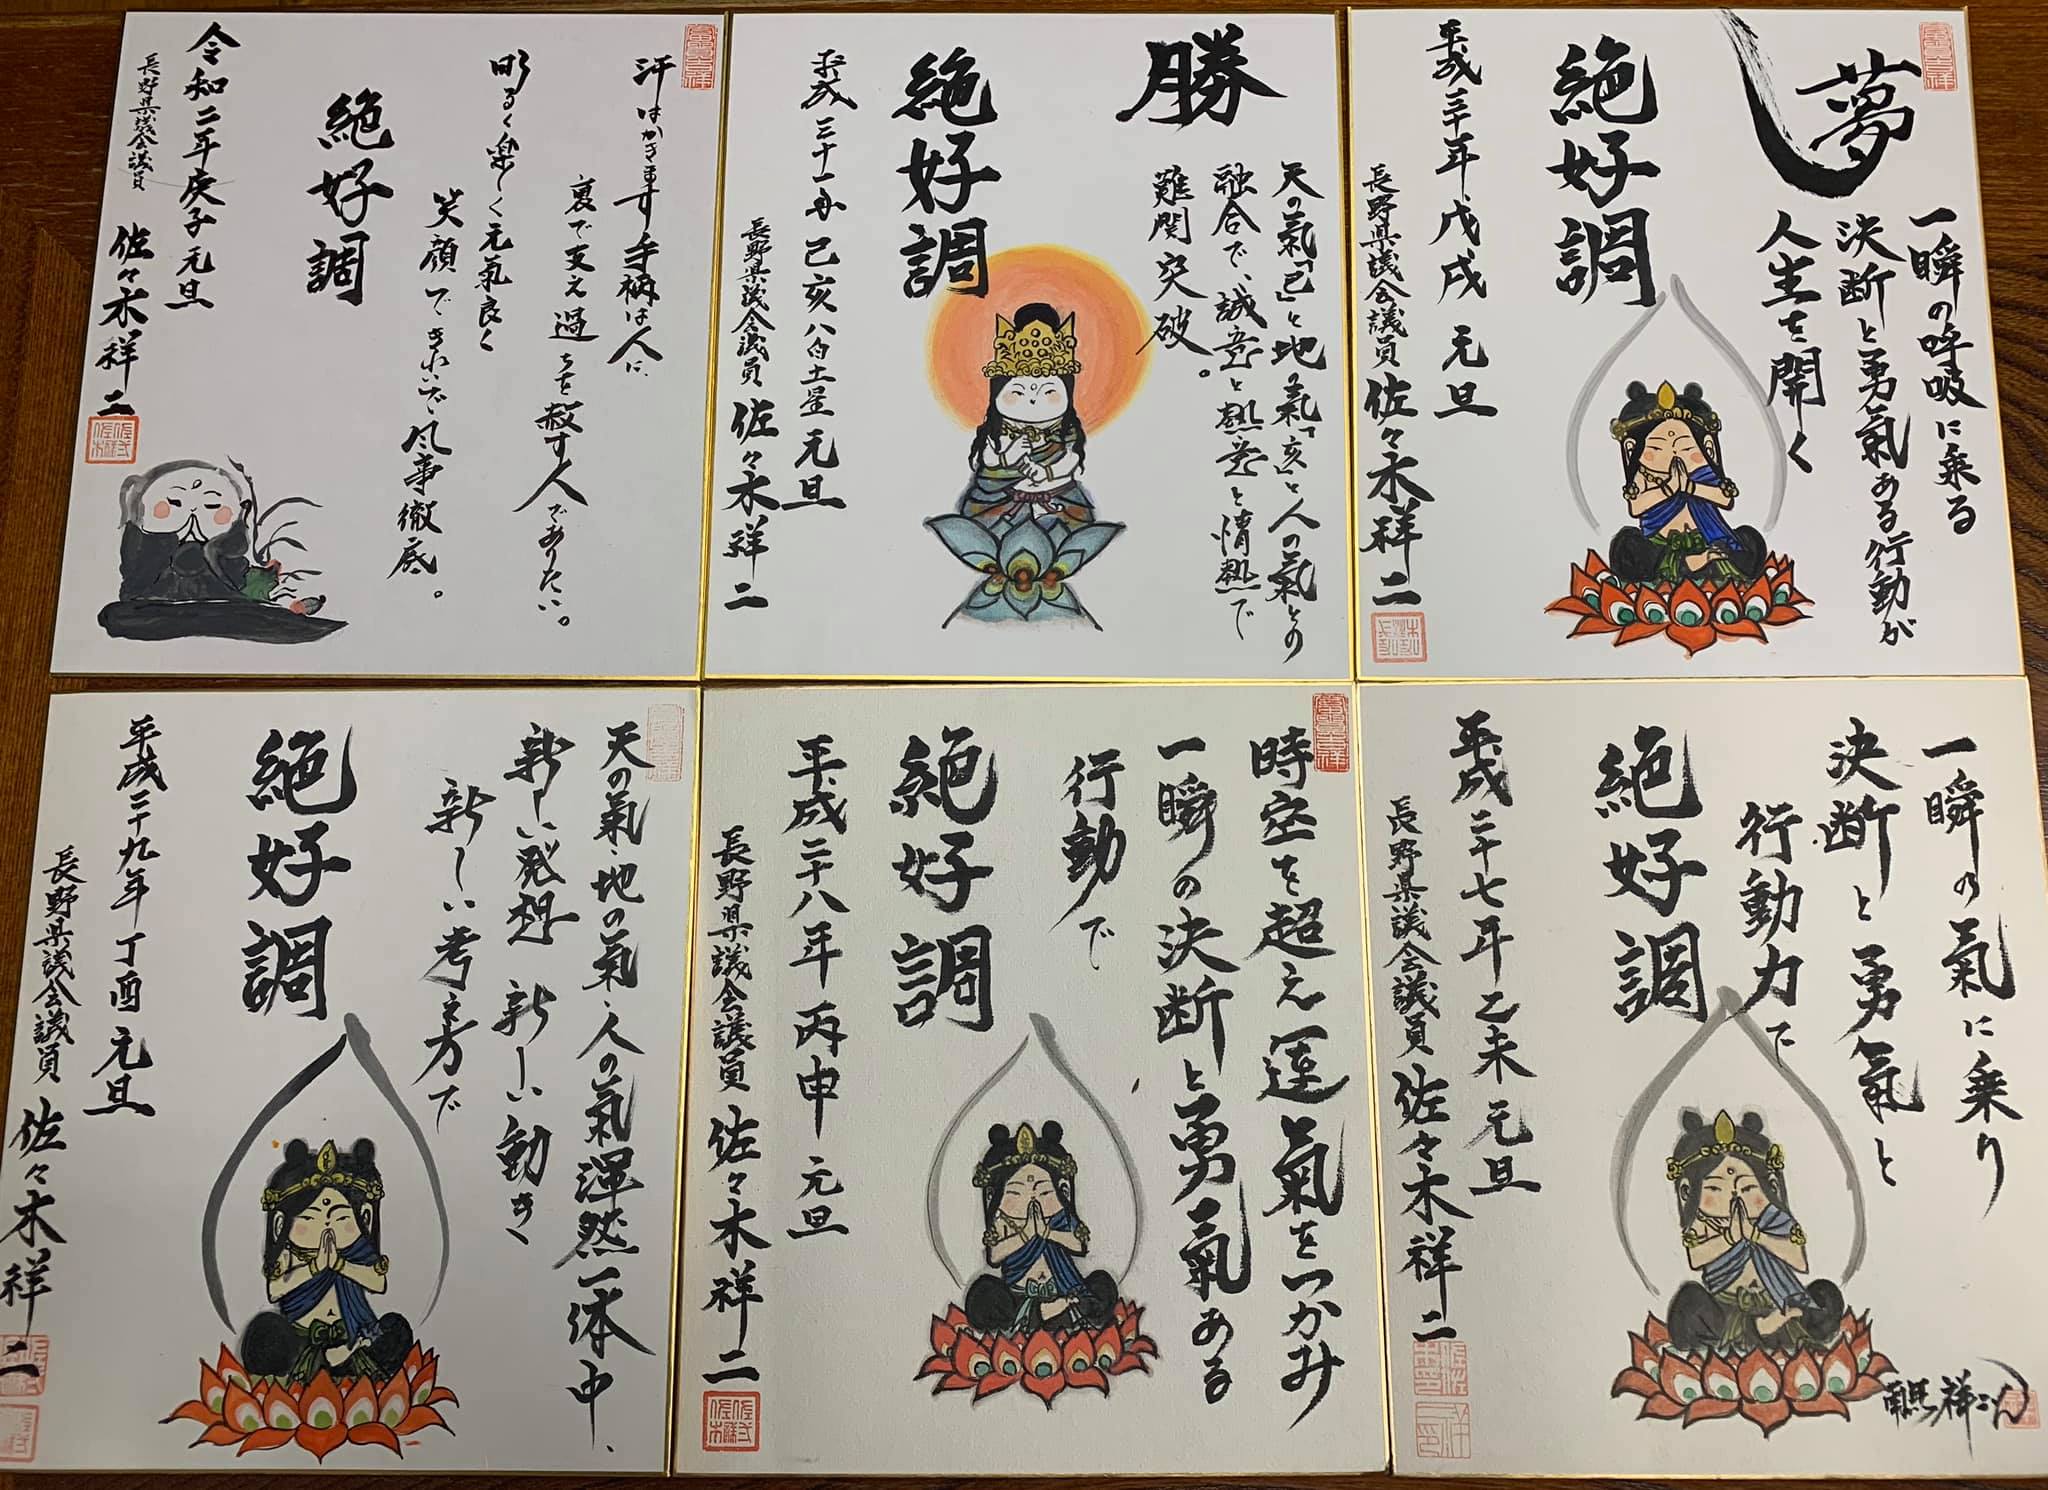 汗はかきます手柄は人に
裏で支え過ちを赦す人でありたい。
明るく楽しく元氣良く
笑顔できれいで凡事徹底。
絶好調
令和二年庚子元旦
長野県議会議員
佐々木祥二
勝
天の氣「己」と地の氣「亥」と人の氣との
融合で、誠意と熱意と情熱で
難関突破。
絶好調
平成三十一年己亥八白土星元旦
長野県議会議員 佐々木祥二
夢
一瞬の呼吸に乗る
決断と勇氣ある行動が
人生を開く
絶好調
平成三十年戊戌元旦
長野県議会議員佐々木祥二
天の氣・地の氣・人の氣渾然一体中、
新しい発想新しい動き
新しい考え方で
絶好調
平成二十九年丁酉元旦
長野県議会議員 佐々木祥二
時空を超え運氣をつかみ
一瞬の決断と勇氣ある
行動で
絶好調
平成二十八年丙申元旦
長野県議会議員佐々木祥二
一瞬の氣に乗り
決断と勇氣と
行動力で
絶好調
平成二十七年乙未元旦
長野県議会議員佐々木祥二